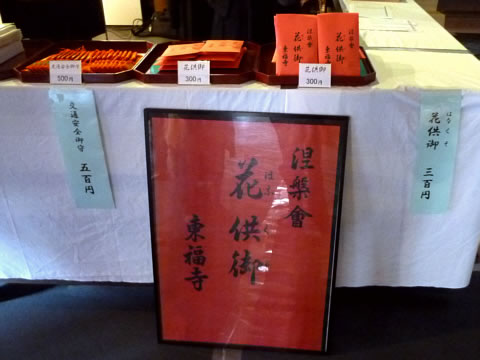 交通安全御守
500円
花供御
300円
涅槃會
花供御
東福寺
涅槃會
花供御
東福寺
花供御
300円
交通安全御守 五百円
はなくそ
花供御 三百円
涅槃會
花供御
東福寺